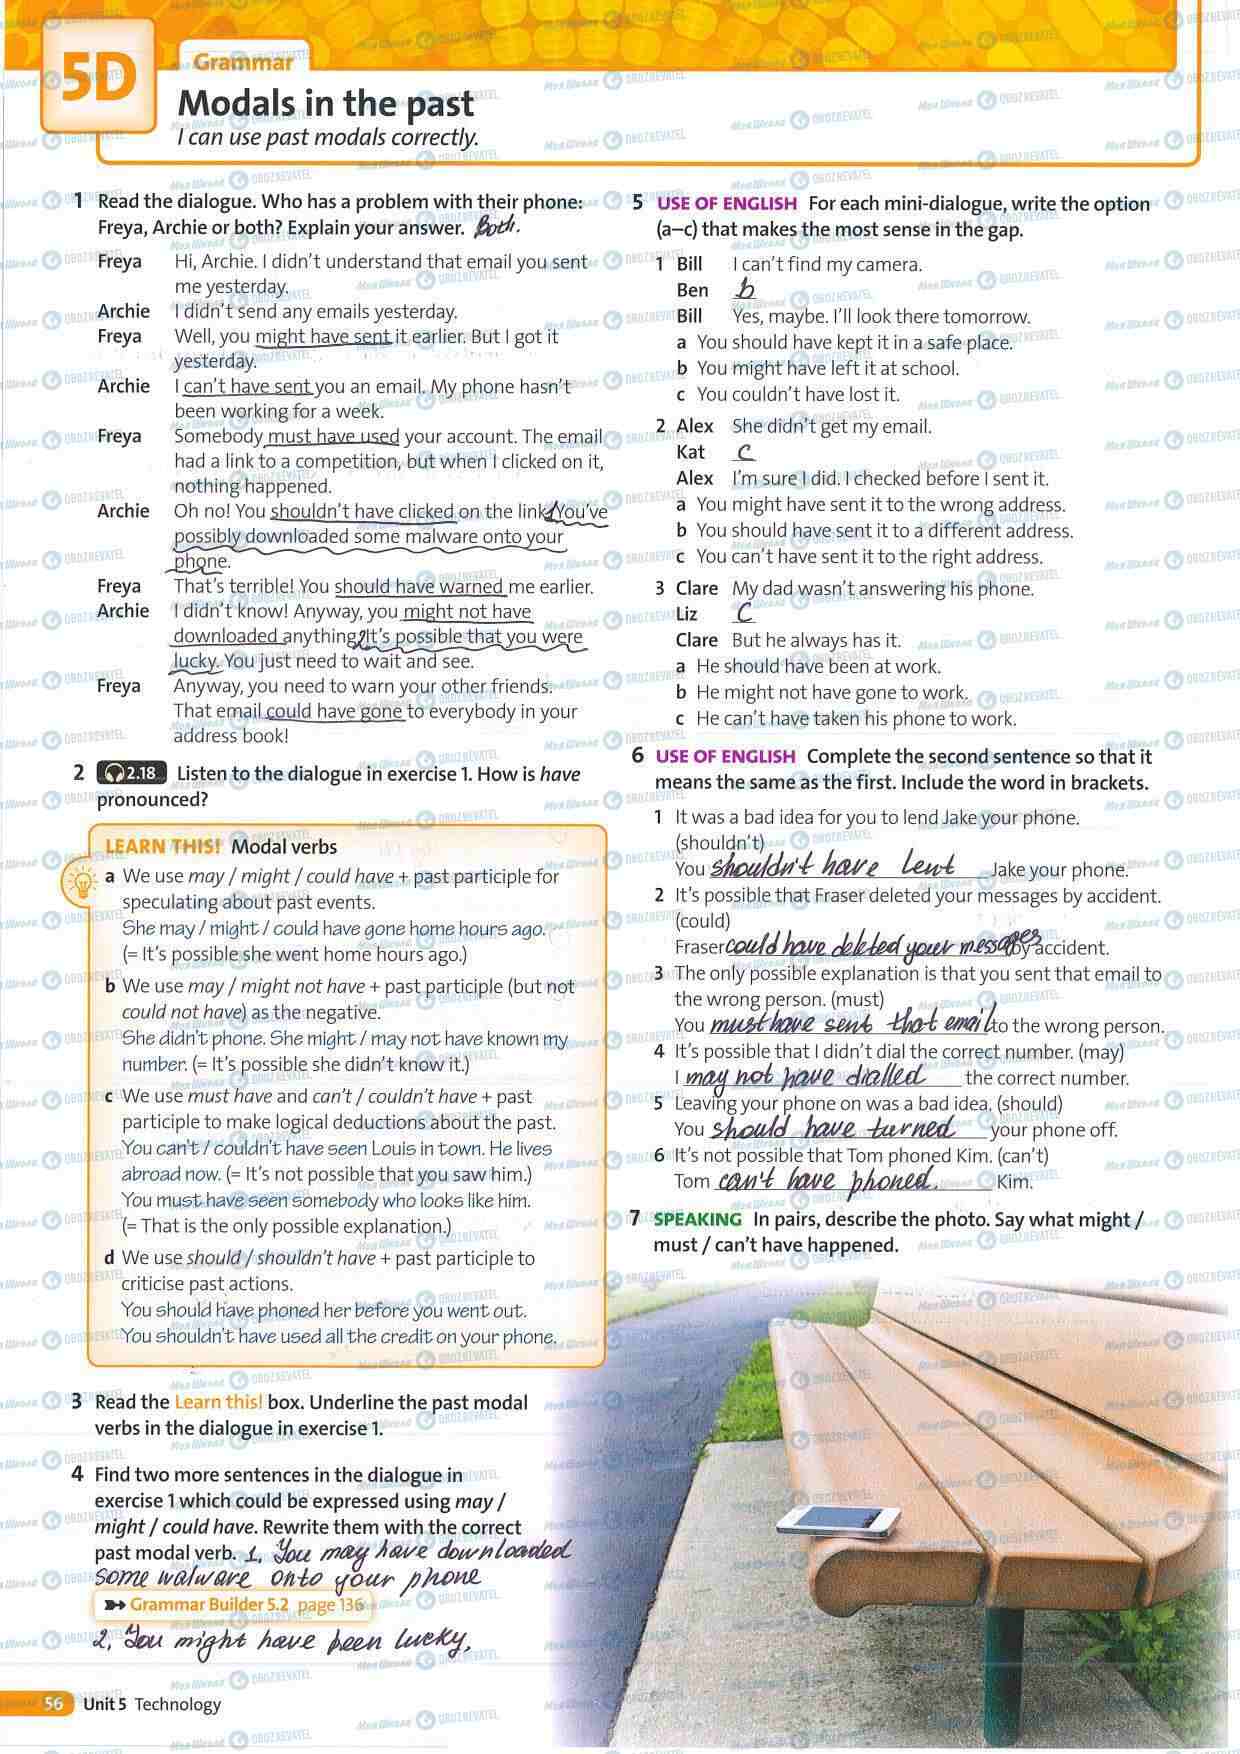 5D
Grammar
Modals in the past
I can use past modals correctly.
1 Read the dialogue. Who has a problem with their phone:
Freya, Archie or both? Explain your answer. Both.
Freya Hi, Archie. I didn't understand that email you sent
me yesterday.
Archie I didn't send any emails yesterday.
Freya Well, you might have sent it earlier. But I got it
yesterday.
Archie I can't have sent you an email. My phone hasn't
been working for a week.
Freya Somebody must have used your account. The email
had a link to a competition, but when I clicked on it,
nothing happened.
Archie Oh no! You shouldn't have clicked on the link. 1 You've
possibly downloaded some malware onto your
phone.
Freya That's terrible! You should have warned me earlier.
Archie I didn't know! Anyway, you might not have
downloaded anything. 2 It's possible that you were
lucky. You just need to wait and see.
Freya Anyway, you need to warn your other friends.
That email could have gone to everybody in your
address book!
2 2.18 Listen to the dialogue in exercise 1. How is have
pronounced?
LEARN THIS! Modal verbs
a We use may / might / could have + past participle for
speculating about past events.
She may / might / could have gone home hours ago.
(= It's possible she went home hours ago.)
b We use may / might not have + past participle (but not
could not have) as the negative.
She didn't phone. She might / may not have known my
number. (= It's possible she didn't know it.)
c We use must have and can't / couldn't have + past
participle to make logical deductions about the past.
You can't / couldn't have seen Louis in town. He lives
abroad now. (= It's not possible that you saw him.)
You must have seen somebody who looks like him.
(= That is the only possible explanation.)
d We use should / shouldn't have + past participle to
criticise past actions.
You should have phoned her before you went out.
You shouldn't have used all the credit on your phone.
3 Read the Learn this! box. Underline the past modal
verbs in the dialogue in exercise 1.
4 Find two more sentences in the dialogue in
exercise 1 which could be expressed using may /
might / could have. Rewrite them with the correct
past modal verb. 1. You may have downloaded
some walware onto your phone
Grammar Builder 5.2 page 136
2. You might have been lucky.
56 Unit 5 Technology
5 USE OF ENGLISH For each mini-dialogue, write the option
(a–c) that makes the most sense in the gap.
1 Bill I can't find my camera.
Ben b
Bill Yes, maybe. I'll look there tomorrow.
a You should have kept it in a safe place.
b You might have left it at school.
c You couldn't have lost it.
2 Alex She didn't get my email.
Kat c
Alex I'm sure I did. I checked before I sent it.
a You might have sent it to the wrong address.
b You should have sent it to a different address.
c You can't have sent it to the right address.
3 Clare My dad wasn't answering his phone.
Liz c
Clare But he always has it.
a He should have been at work.
b He might not have gone to work.
c He can't have taken his phone to work.
6 USE OF ENGLISH Complete the second sentence so that it
means the same as the first. Include the word in brackets.
1 It was a bad idea for you to lend Jake your phone.
(shouldn't)
You shouldn't have lent Jake your phone.
2 It's possible that Fraser deleted your messages by accident.
(could)
Fraser could have deleted your messages by accident.
3 The only possible explanation is that you sent that email to
the wrong person. (must)
You must have sent that email to the wrong person.
4 It's possible that I didn't dial the correct number. (may)
I may not have dialled the correct number.
5 Leaving your phone on was a bad idea. (should)
You should have turned your phone off.
6 It's not possible that Tom phoned Kim. (can't)
Tom can't have phoned. Kim.
7 SPEAKING In pairs, describe the photo. Say what might /
must / can't have happened.